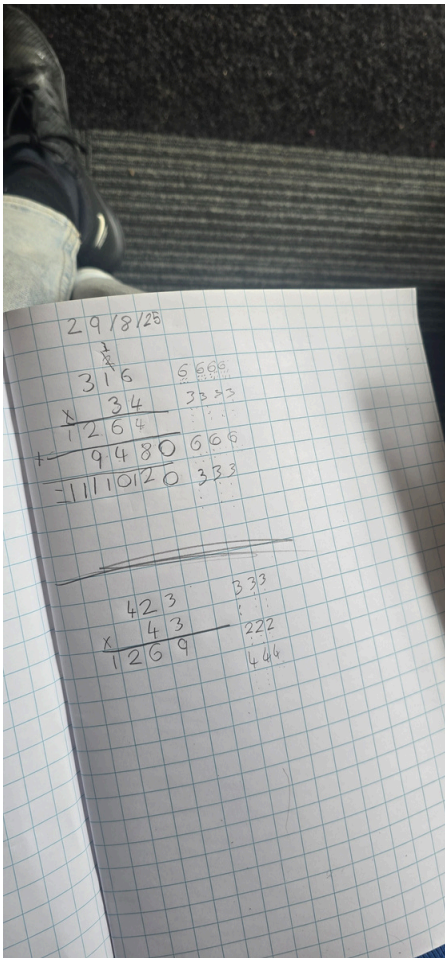 29/8/25
1
2
316 6666
x 34 3333
1264
+ 9480 666
=11/10120 333
423 333
x 43 222
1269 444